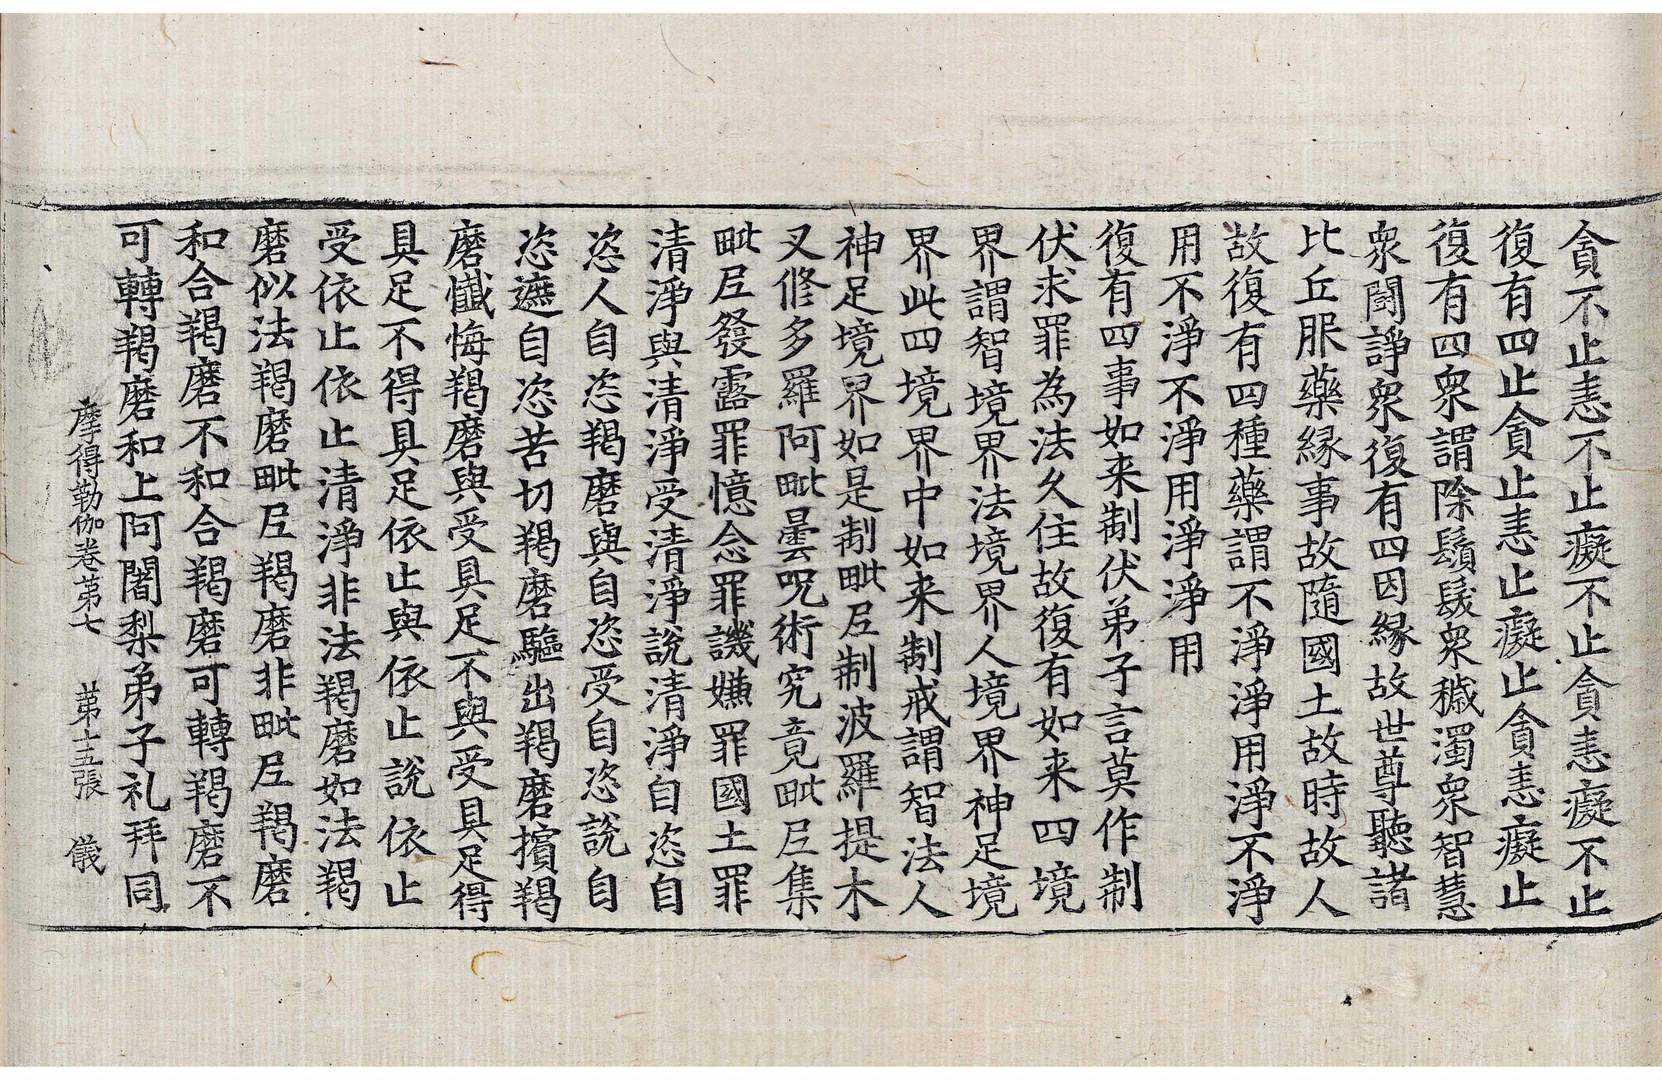 貪不止恚不止癡不止貪恚癡不止
復有四止貪止恚止癡止貪恚癡止
復有四衆謂除鬚髮衆穢濁衆智慧
衆鬪諍衆復有四因緣故世尊聽諸
比丘服藥緣事故隨國土故時故人
故復有四種藥謂不淨淨用淨不淨
用不淨不淨用淨淨用
復有四事如来制伏弟子言莫作制
伏求罪為法久住故復有如来四境
界謂智境界法境界人境界神足境
界此四境界中如来制戒謂智法人
神足境界如是制毗尼制波羅提木
叉修多羅阿毗曇呪術究竟毗尼集
毗尼發露罪憶念罪譏嫌罪國土罪
清淨與清淨受清淨說清淨自恣自
恣人自恣羯磨與自恣受自恣說自
恣遮自恣苦切羯磨驅出羯磨擯羯
磨懺悔羯磨與受具足不與受具足得
具足不得具足依止與依止說依止
受依止依止清淨非法羯磨如法羯
磨似法羯磨毗尼羯磨非毗尼羯磨
和合羯磨不和合羯磨可轉羯磨不
可轉羯磨和上阿闍梨弟子礼拜同
摩得勒伽卷第七 第十五張 儀